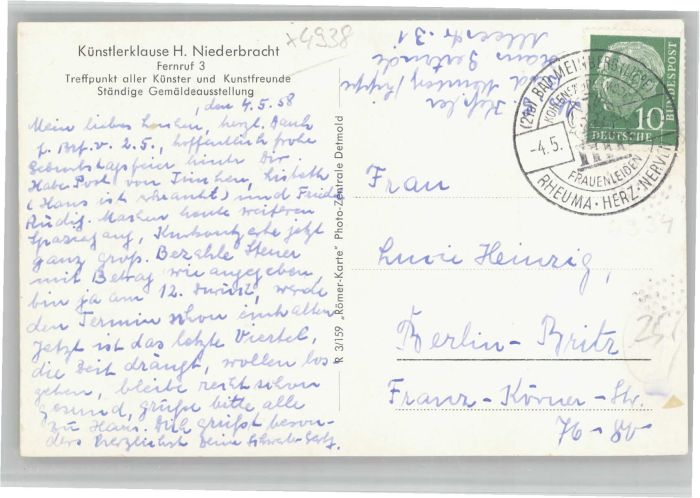 Künstlerklause H. Niederbracht
Fernruf 3
Treffpunkt aller Künster und Kunstfreunde
Ständige Gemäldeausstellung
x4938
, den 4.5.58
Mein liebes herzl. Dank
f. Brf. v. 2.5., hoffentlich frohe
Geburtstagsfeier hinter Dir
Habe Post von
(Hans ist erkrankt) und
Rüdig. Machen heute weiteren
Spaziergang, Kurkonzerte jetzt
ganz groß. Bezahle Steuer
mit Betrag wie angegeben,
bin ja am 12. zurück, werde
den Termin schon einhalten
Jetzt ist das letzte Viertel,
die Zeit drängt, wollen los
gehen, bleibe recht schon
gesund, grüße bitte alle
zu Haus. Dich grüßt beson-
ders herzlichst Deine
R 3/159 „Römer-Karte" Photo-Zentrale Detmold
Haus Gertrude
Alleestr. 31
(21a) BAD MEINBERG (LIPPE)
-4.5.
FRAUENLEIDEN
RHEUMA · HERZ · NERVEN
10
DEUTSCHE
BUNDESPOST
Frau
Lucie Heinzig,
Berlin-Britz
Franz-Körner-Str.
76-80
4934